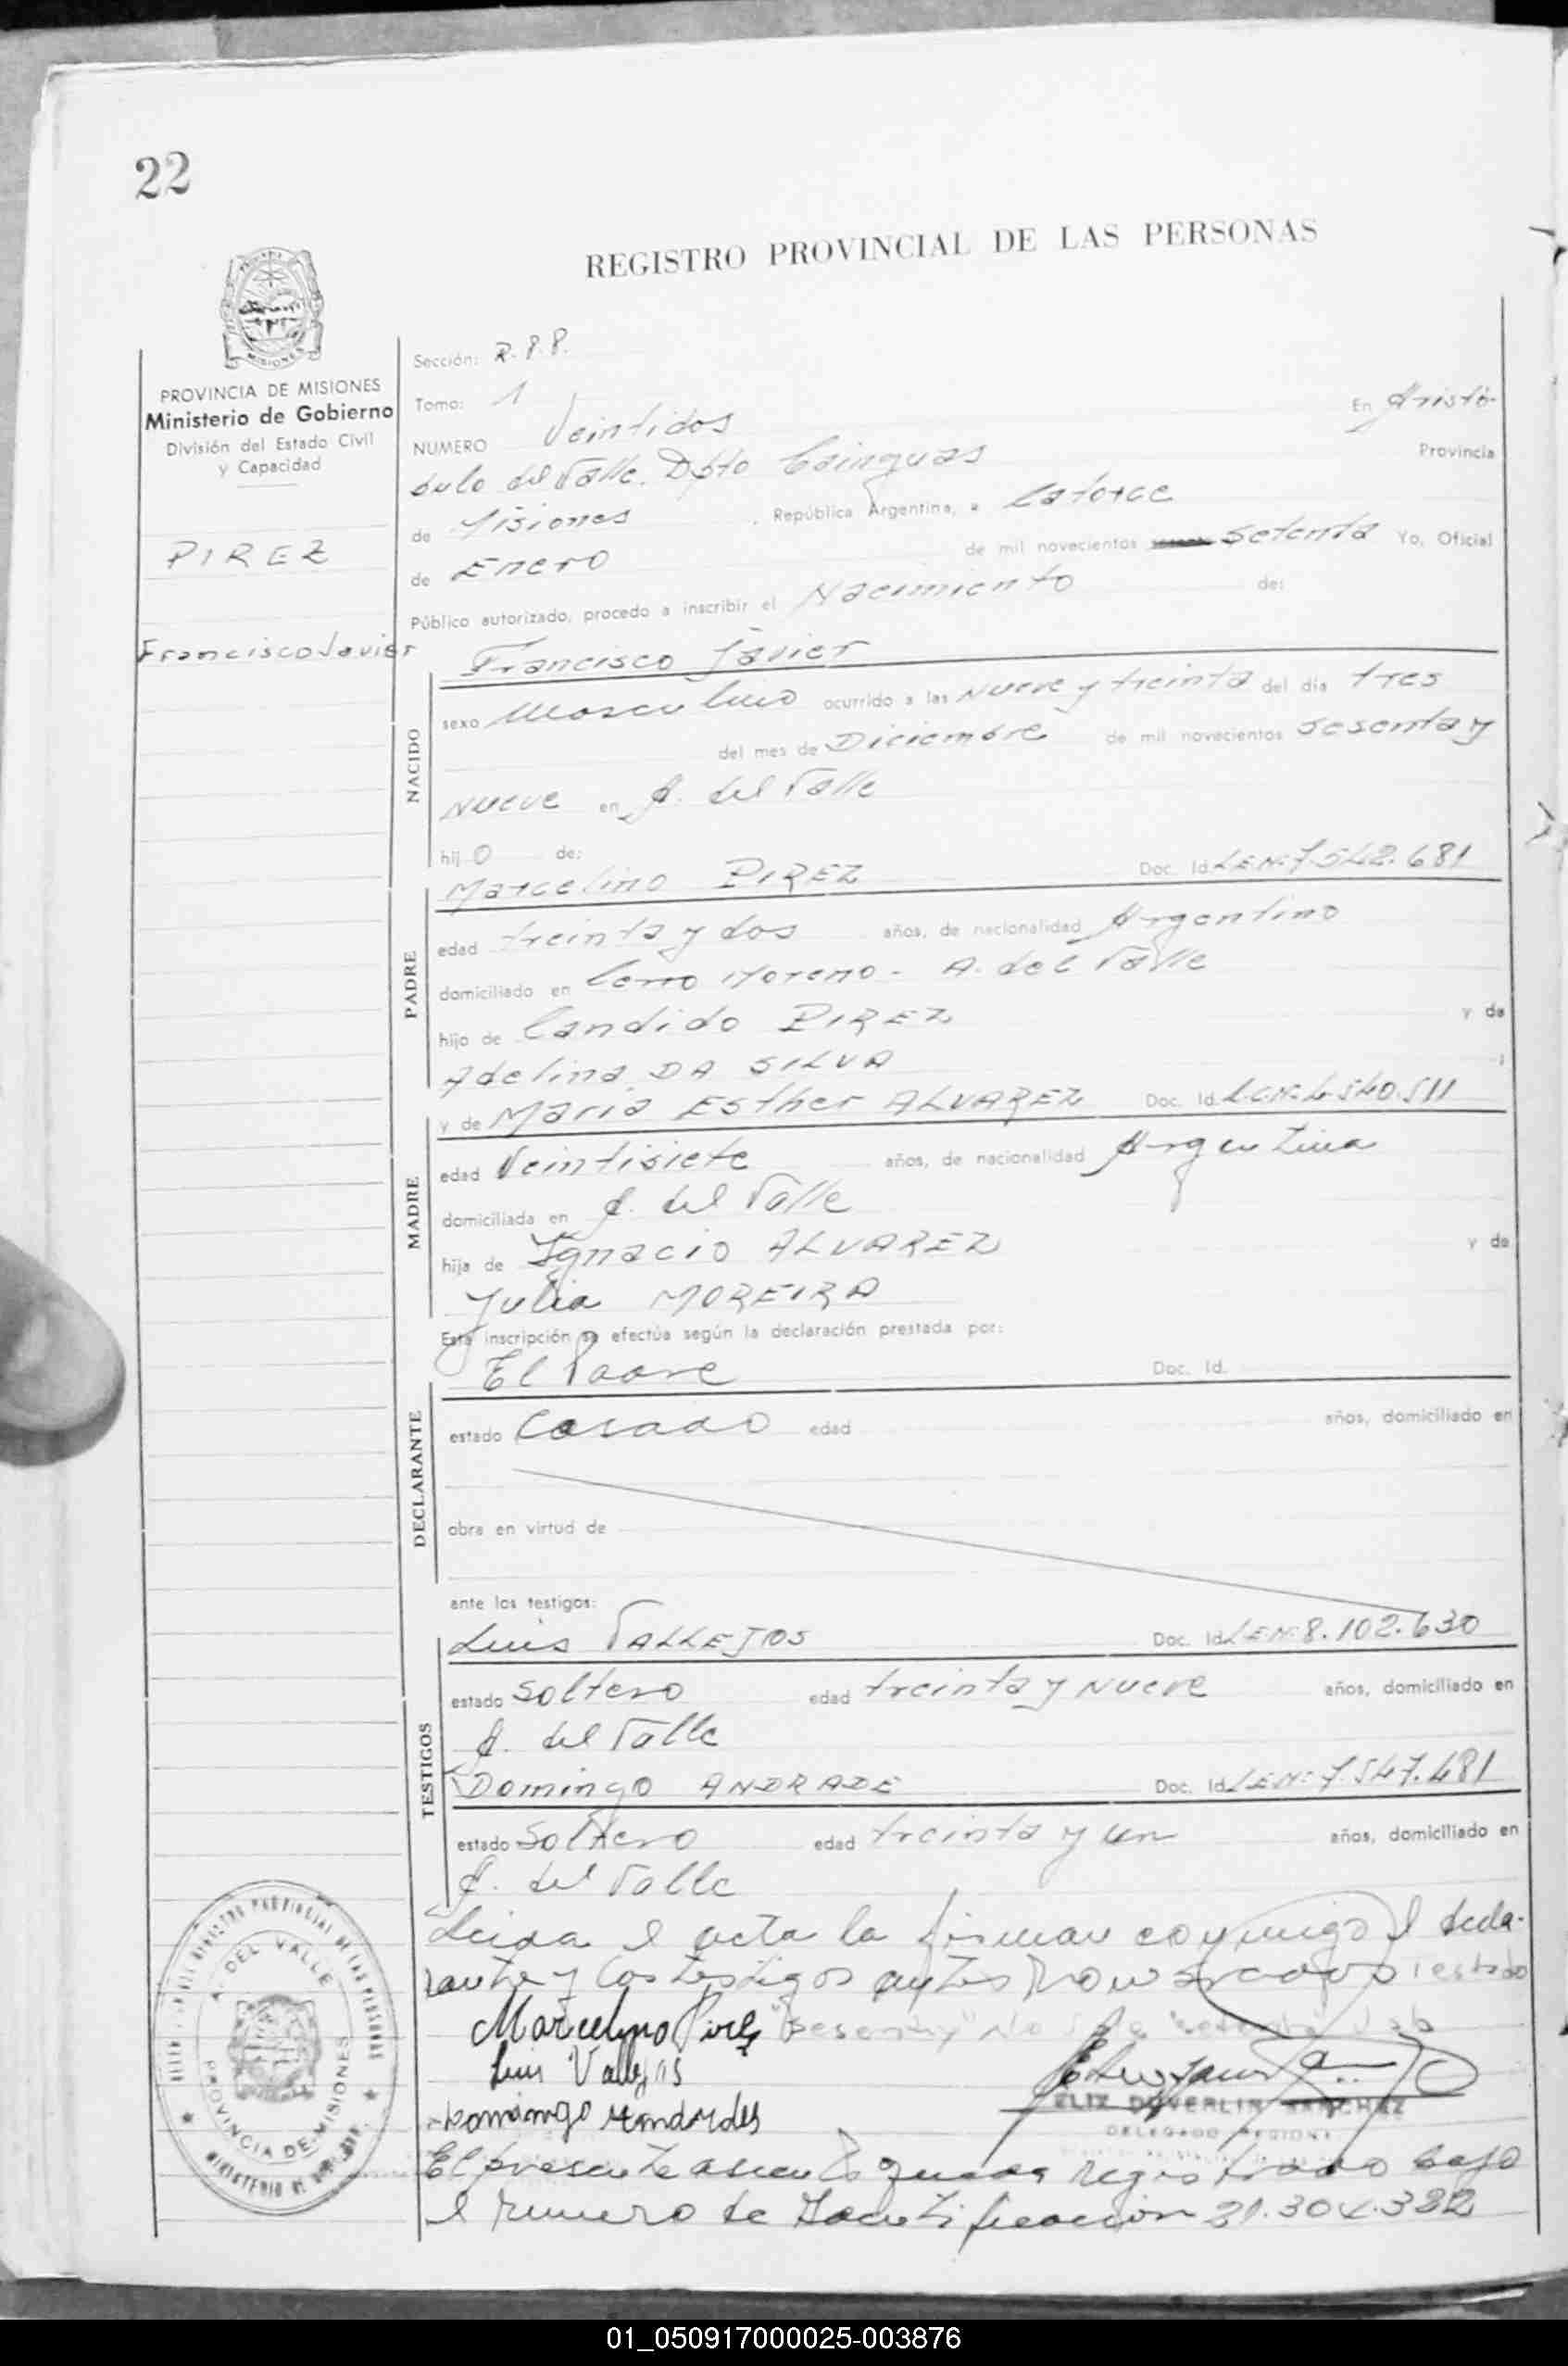 22
REGISTRO PROVINCIAL DE LAS PERSONAS
MISIONES
PROVINCIA DE MISIONES
Ministerio de Gobierno
División del Estado Civil
y Capacidad
PIREZ
Francisco Javier
Sección: R.P.P.
Tomo: 1 En Aristó-
NUMERO Veintidos
bulo del Valle. Dpto Cainguas Provincia
de Misiones, República Argentina, a Catorce
de Enero de mil novecientos setenta Yo, Oficial
Público autorizado, procedo a inscribir el Nacimiento de:
Francisco Javier
NACIDO
sexo Masculino ocurrido a las Nueve y treinta del día tres
del mes de Diciembre de mil novecientos sesenta y
Nueve en A. del Valle
hijO de:
Marcelino PIREZ Doc. Id. L.E.Nº 7.542.681
PADRE
edad treinta y dos años, de nacionalidad Argentino
domiciliado en Cerro Moreno - A. del Valle
hijo de Candido PIREZ y de
Adelina DA SILVA
y de Maria Esther ALVAREZ Doc. Id. L.C.Nº 4.540.511
MADRE
edad Veintisiete años, de nacionalidad Argentina
domiciliada en A. del Valle
hija de Ignacio ALVAREZ y de
Julia MOREIRA
Esta inscripción se efectúa según la declaración prestada por:
El Padre Doc. Id.
DECLARANTE
estado Casado edad años, domiciliado en
obra en virtud de
ante los testigos:
Luis VALLEJOS Doc. Id. L.E.Nº 8.102.630
TESTIGOS
estado Soltero edad treinta y Nueve años, domiciliado en
A. del Valle
Domingo ANDRADE Doc. Id. L.E.Nº 7.547.481
estado Soltero edad treinta y un años, domiciliado en
A. del Valle
Leida el acta la firman conmigo el decla-
rante y los testigos testado
Marcelino Pirez
Luis Vallejos
Domingo Andrades
DELEGADO
A. DEL VALLE
PROVINCIA DE MISIONES
El presente asiento queda registrado bajo
el numero de Identificacion 21.304.382
01_050917000025-003876